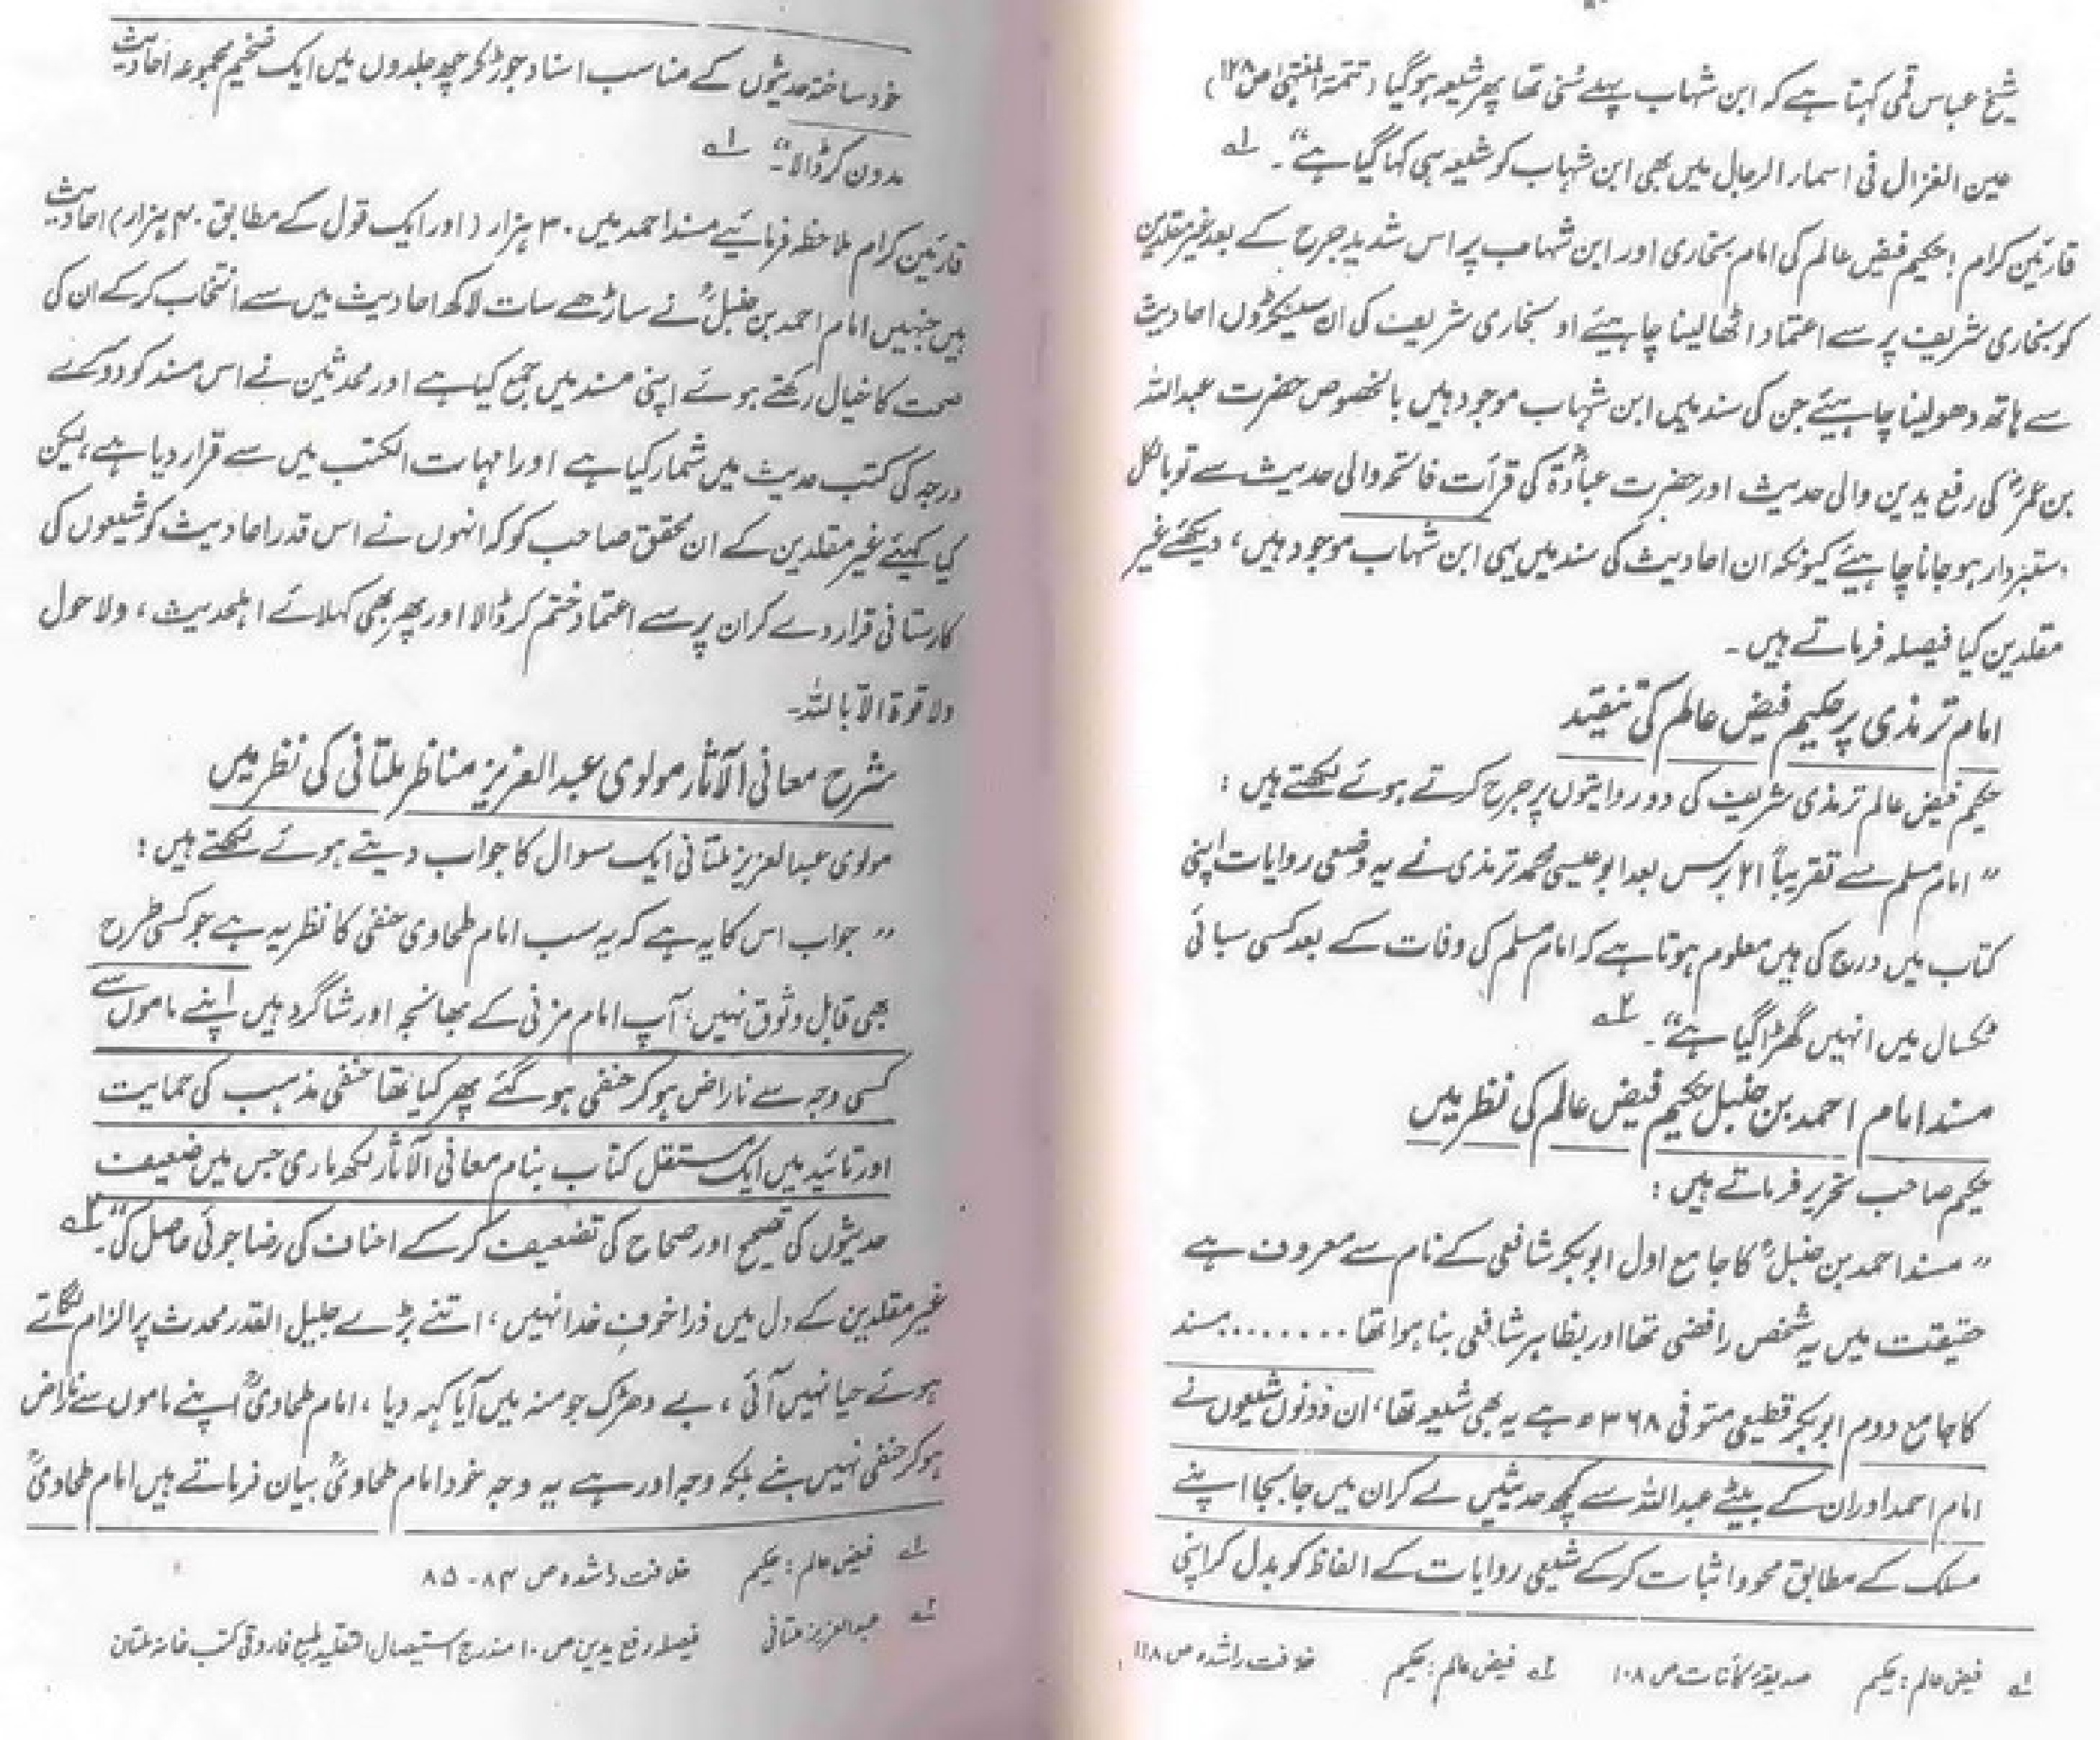 شیخ عباس قمی کہتا ہے کہ ابن شہاب پہلے سُنی تھا پھر شیعہ ہوگیا (تتمۃ المنتہیٰ ص ۱۲۸)
عین الغزال فی اسمار الرجال میں بھی ابن شہاب کو شیعہ ہی کہا گیا ہے"۔ ۱؎
قارئین کرام! حکیم فیض عالم کی امام بخاری اور ابن شہاب پر اس شدید جرح کے بعد غیر مقلدین
کو بخاری شریف پر سے اعتماد اٹھا لینا چاہیئے او بخاری شریف کی ان سینکڑوں احادیث
سے ہاتھ دھو لینا چاہیئے جن کی سند میں ابن شہاب موجود ہیں بالخصوص حضرت عبداللہ
بن عمرؓ کی رفع یدین والی حدیث اور حضرت عبادۃؓ کی قرأت فاتحہ والی حدیث سے تو بالکل
دستبردار ہو جانا چاہیئے کیونکہ ان احادیث کی سند میں ہی ابن شہاب موجود ہیں، دیکھئے غیر
مقلدین کیا فیصلہ فرماتے ہیں۔
امام ترمذی پر حکیم فیض عالم کی تنقید
حکیم فیض عالم ترمذی شریف کی دو روایتوں پر جرح کرتے ہوئے لکھتے ہیں:
"امام مسلم سے تقریباً ۲۱ برس بعد ابو عیسیٰ محمد ترمذی نے یہ وضعی روایات اپنی
کتاب میں درج کی ہیں معلوم ہوتا ہے کہ امام مسلم کی وفات کے بعد کسی سبائی
ٹکسال میں انہیں گھڑا گیا ہے"۔ ۲؎
مسند امام احمد بن حنبل حکیم فیض عالم کی نظر میں
حکیم صاحب تحریر فرماتے ہیں:
"مسند احمد بن حنبلؒ کا جامع اول ابو بکر شافعی کے نام سے معروف ہے
حقیقت میں یہ شخص رافضی تھا اور بظاہر شافعی بنا ہوا تھا ........ مسند
کا جامع دوم ابو بکر قطیعی متوفی ۳۶۸ھ ہے یہ بھی شیعہ تھا، ان دونوں شیعوں نے
امام احمد اور ان کے بیٹے عبداللہ سے کچھ حدیثیں لے کر ان میں جا بجا اپنے
مسلک کے مطابق محو و اثبات کر کے شیعی روایات کے الفاظ کو بدل کر اپنی
۱؎ فیض عالم: حکیم صدیقۂ کائنات ص ۱۰۸ ۲؎ فیض عالم: حکیم خلافت راشدہ ص ۱۱۸
خود ساختہ حدیثوں کے مناسب اسناد جوڑ کر چھ جلدوں میں ایک ضخیم مجموعہ احادیث
مدون کر ڈالا"۔ ۱؎
قارئین کرام ملاحظہ فرمائیے مسند احمد میں ۳۰ ہزار (اور ایک قول کے مطابق ۴۰ ہزار) احادیث
ہیں جنہیں امام احمد بن حنبلؒ نے ساڑھے سات لاکھ احادیث میں سے انتخاب کر کے ان کی
صحت کا خیال رکھتے ہوئے اپنی مسند میں جمع کیا ہے اور محدثین نے اس مسند کو دوسرے
درجہ کی کتب حدیث میں شمار کیا ہے اور امہات الکتب میں سے قرار دیا ہے، لیکن
کیا کہیئے غیر مقلدین کے ان محقق صاحب کو کہ انہوں نے اس قدر احادیث کو شیعوں کی
کارستانی قرار دے کر ان پر سے اعتماد ختم کر ڈالا اور پھر بھی کہلائے اہلحدیث، ولا حول
ولا قوۃ الّا باللہ۔
شرح معانی الآثار مولوی عبدالعزیز مناظر ملتانی کی نظر میں
مولوی عبدالعزیز ملتانی ایک سوال کا جواب دیتے ہوئے لکھتے ہیں:
"جواب اس کا یہ ہے کہ یہ سب امام طحاوی حنفی کا نظریہ ہے جو کسی طرح
بھی قابل وثوق نہیں، آپ امام مزنی کے بھانجہ اور شاگرد ہیں اپنے ماموں سے
کسی وجہ سے ناراض ہو کر حنفی ہو گئے پھر کیا تھا حنفی مذہب کی حمایت
اور تائید میں ایک مستقل کتاب بنام معانی الآثار لکھ ماری جس میں ضعیف
حدیثوں کی تصحیح اور صحاح کی تضعیف کر کے احناف کی رضا جوئی حاصل کی"۔ ۲؎
غیر مقلدین کے دل میں ذرا خوفِ خدا نہیں، اتنے بڑے جلیل القدر محدث پر الزام لگاتے
ہوئے حیا نہیں آئی، بے دھڑک جو منہ میں آیا کہہ دیا، امام طحاویؒ اپنے ماموں سے ناراض
ہو کر حنفی نہیں بنے بلکہ وجہ اور ہے یہ وجہ خود امام طحاویؒ بیان فرماتے ہیں امام طحاویؒ
۱؎ فیض عالم: حکیم خلافت راشدہ ص ۸۴-۸۵
۲؎ عبدالعزیز ملتانی فیصلہ رفع یدین ص ۱۰ مندرج استیصال التقلید طبع فاروقی کتب خانہ ملتان